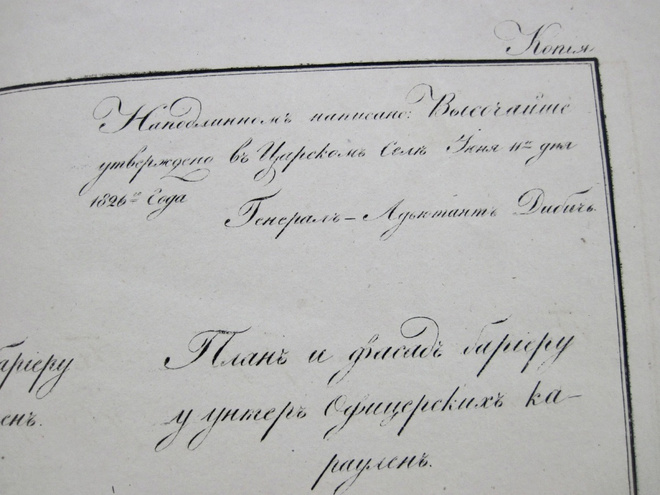 Копія
Наподлинномъ написано: Высочайше
утверждено въ Царскомъ Селѣ Іюня 11го дня
1826го Года
Генералъ-Адъютантъ Дибичъ.
баріеру
енъ.
Планъ и фасадъ баріеру
у унтеръ Офицерскихъ ка-
рауленъ.